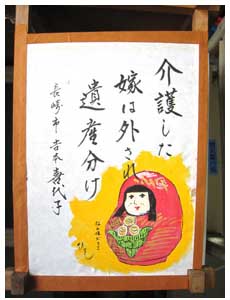 介護した
嫁は外され
遺産分け
長崎市 吉本 紀代子